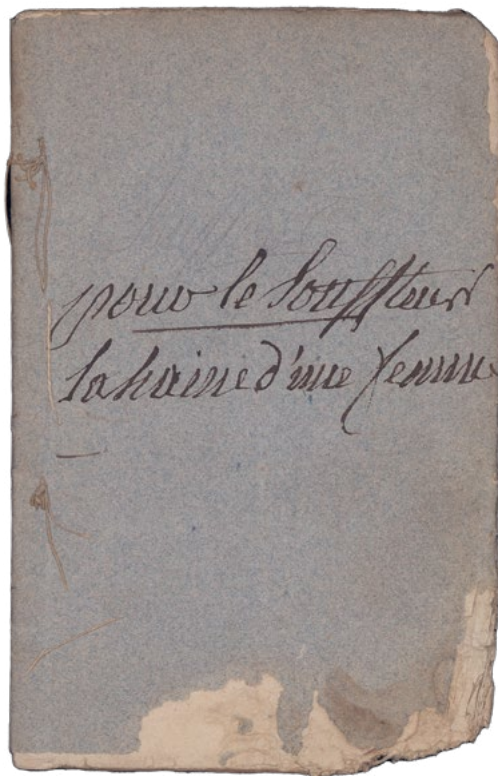 pour le Souffleur
la haine d'une femme